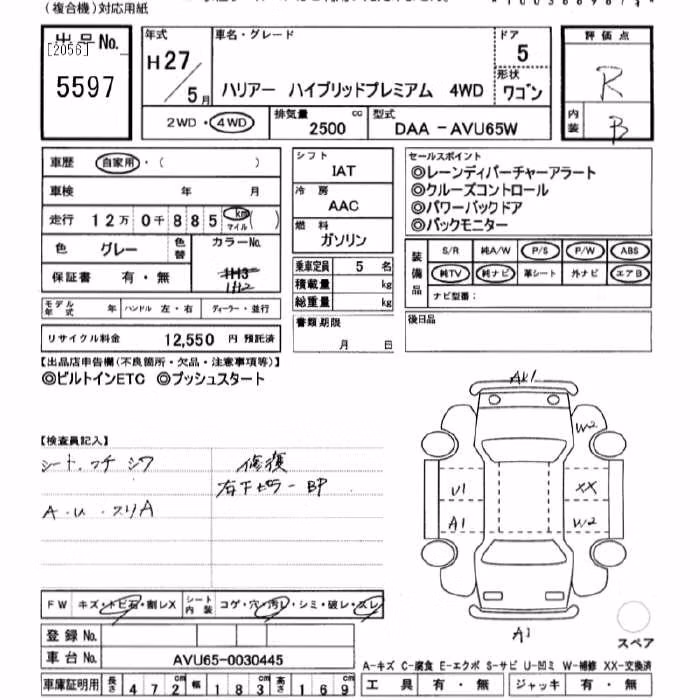 (複合機)対応用紙
出品No.
[2056]
5597
年式
H27/5月
車名・グレード
ハリアー ハイブリッドプレミアム 4WD
ドア
5
形状
ワゴン
評価点
R
内装
B
2WD・4WD
排気量
2500 cc
型式
DAA-AVU65W
車歴 自家用・( )
車検 年 月
走行 12万0千885 km マイル ( )
色 グレー
色替
カラーNo.
1H2
保証書 有・無
モデル年式 年
ハンドル 左・右
ディーラー・並行
リサイクル料金 12,550 円 預託済
シフト
IAT
冷房
AAC
燃料
ガソリン
乗車定員 5 名
積載量 kg
総重量 kg
書類期限
月 日
セールスポイント
◎レーンディパーチャーアラート
◎クルーズコントロール
◎パワーバックドア
◎バックモニター
装備品
S/R 純A/W P/S P/W ABS
純TV 純ナビ 革シート 外ナビ エアB
ナビ型番:
後日品
【出品店申告欄(不良箇所・欠品・注意事項等)】
◎ビルトインETC ◎プッシュスタート
【検査員記入】
シート、ウチ シワ
A・U・スリA
修復
右下ピラーBP
A1
W2
U1
XX
A1
W2
A1
スペア
FW キズ・トビ石・割レX
シート内装 コゲ・穴・汚レ・シミ・破レ・スレ
登録No.
車台No. AVU65-0030445
車庫証明用 長さ 472cm 幅 183cm 高さ 169cm
A-キズ C-腐食 E-エクボ S-サビ U-凹ミ W-補修 XX-交換済
工具 有・無 ジャッキ 有・無